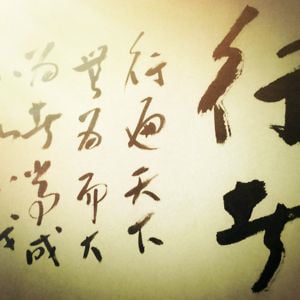 行者
行遍天下
無为而大
为者常成